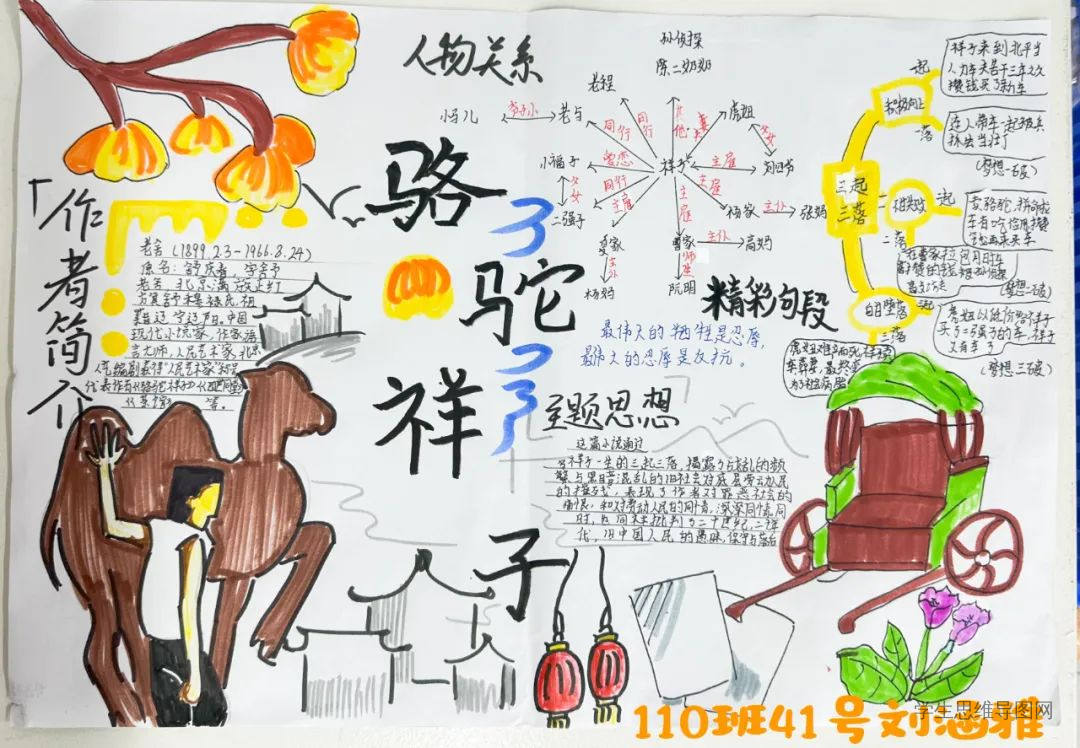 人物关系
孙侦探
陈二奶奶
老程
小马儿
爷孙
老马
同行
同行
其他
夫妻
虎妞
父女
刘四爷
主雇
祥子
小福子
曾恋
父女
二强子
同行
主雇
夏家
主仆
杨妈
主雇
曹家
主仆
高妈
师生
阮明
主雇
杨家
主仆
张妈
骆
驼
祥
子
「作者简介
老舍(1899.2.3-1966.8.24)
原名:舒庆春,字舍予
老舍,北京满族正红
现代小说家,作家,语
言大师,人民艺术家,北京
等。
精彩句段
最伟大的牺牲是忍辱,
最伟大的忍辱是反抗。
主题思想
这篇小说通过
祥子一生的三起三落,揭露了战乱的频
繁与黑暗混乱的旧社会对底层劳动人民
的摧残,表现了作者对罪恶社会的
痛恨,和对劳动人民的同情,深深同情,同
时,
代,旧中国人民的愚昧,保守与落后
三起
三落
积极向上
一起
祥子来到北平当
人力车夫苦干三年之久
攒钱买了新车
一落
连人带车一起被兵
抓去当壮丁
(梦想一破)
二起
卖骆驼,拼命拉
二落
在曹家拉包月时车
(梦想二破)
自甘堕落
三起
又有车了
三落
(梦想三破)
110班41号刘涵雅
学生思维导图网